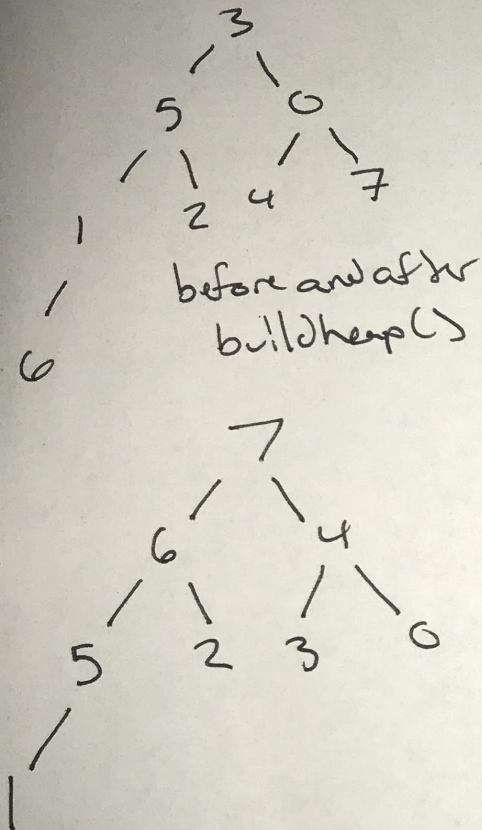 3
5 0
1 2 4 7
6
before and after
buildheap()
7
6 4
5 2 3 0
1